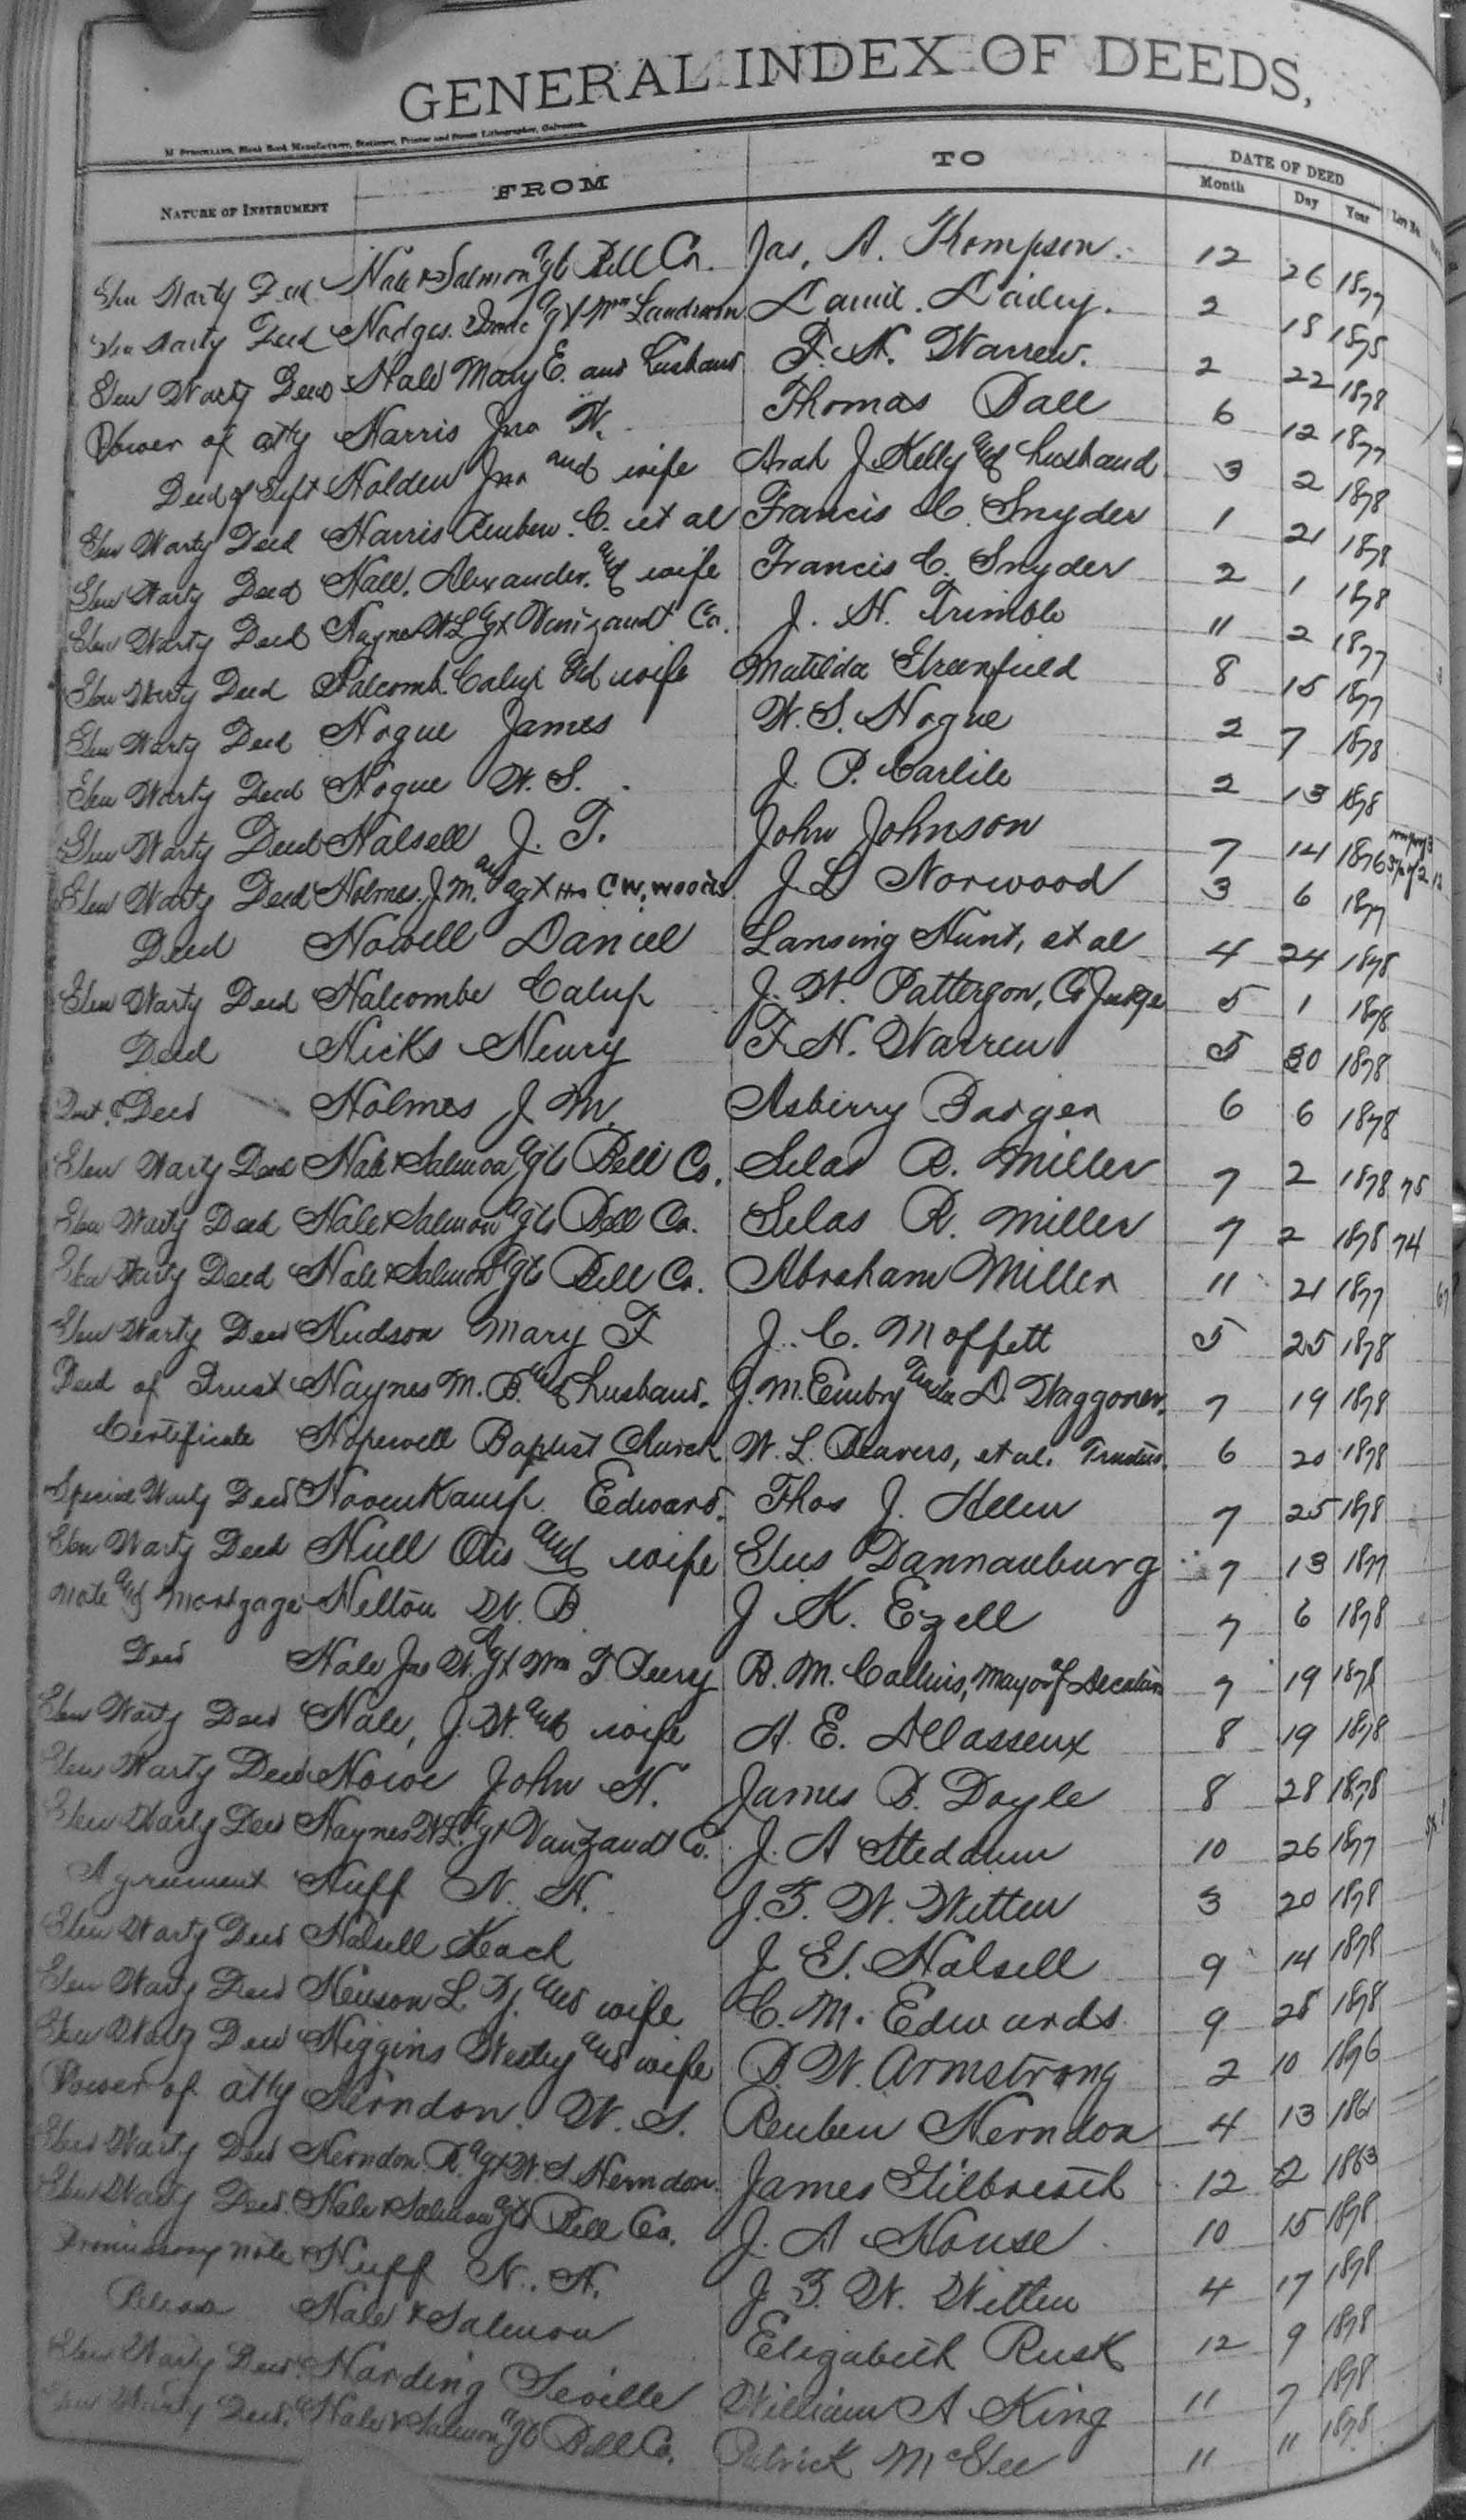 GENERAL INDEX OF DEEDS,
M STRICKLAND, Blank Book Manufacturer, Stationer, Printer and Steam Lithographer, Galveston.
NATURE OF INSTRUMENT FROM TO DATE OF DEED
Month Day Year
Gen Warty Deed Hale & Salmon agts Bell Co. Jas. A. Thompson. 12 26 1877
Gen Warty Deed Hodges agt Wm Landrum Daniel Dailey. 2 18 1875
Gen Warty Deed Hale Mary E. and husband F. H. Warren. 2 22 1878
Power of atty Harris Jno W. Thomas Ball 6 12 1877
Deed of Gift Holden Jno and wife Arah J. Kelly and husband 3 2 1878
Gen Warty Deed Harris Reuben C. et al Francis C. Snyder 1 21 1878
Gen Warty Deed Hall, Alexander and wife Francis C. Snyder 2 1 1878
Gen Warty Deed Haynes W L agt Vanzandt Co. J. H. Trimble 11 2 1877
Gen Warty Deed Halcomb Calup and wife Matilda Greenfield 8 15 1877
Gen Warty Deed Hogue James W. S. Hogue 2 7 1878
Gen Warty Deed Hogue W. S. J. P. Carlile 2 13 1878
Gen Warty Deed Halsell J. T. John Johnson 7 14 1876
Gen Warty Deed Holmes. J. M. and agt C W. Woods J L Norwood 3 6 1877
Deed Howell Daniel Lansing Hunt, et al 4 24 1878
Gen Warty Deed Halcombe Calup J. W. Patterson, Co Judge 5 1 1878
Deed Hicks Henry F. H. Warren 5 30 1878
Quit C Deed Holmes J. M. Asberry Barger 6 6 1878
Gen Warty Deed Hale & Salmon agts Bell Co. Silas R. Miller 7 2 1878 75
Gen Warty Deed Hale & Salmon agts Bell Co. Silas R. Miller 7 2 1878 74
Gen Warty Deed Hale & Salmon agts Bell Co. Abraham Miller 11 21 1877
Gen Warty Deed Hudson Mary F J. C. Moffett 5 25 1878
Deed of Trust Haynes M. B. and husband. J. M. Embry D. Waggoner. 7 19 1878
Certificate Hopewell Baptist Church W. L. Deavers, et al. Trustees. 6 20 1878
Special Warty Deed Hovenkamp Edward. Thos J. Helm 7 25 1878
Gen Warty Deed Hull Otis and wife Gus Dannanburg 7 13 1877
Note and Mortgage Helton W. B J. K. Ezell 7 6 1878
Deed Hale Jno W. agt Wm F. Peery B. M. Collins, Mayor of Decatur 7 19 1878
Gen Warty Deed Hale, J. W. and wife A. E. Allasseux 8 19 1878
Gen Warty Deed Howe John H. James B. Doyle 8 28 1878
Gen Warty Deed Haynes W L. agt Vanzandt Co. J. A Stedaum 10 26 1877
Agreement Huff N. H. J. F. W. Witten 3 20 1878
Gen Warty Deed Halsell Keach J. G. Halsell 9 14 1878
Gen Warty Deed Henson L. D. and wife C. M. Edwards. 9 28 1878
Gen Warty Deed Higgins Wesley and wife B. W. Armstrong 2 10 1876
Power of atty Herndon. W. S. Reuben Herndon 4 13 1861
Gen Warty Deed Herndon R. agt W. S. Herndon. James Gilbreath 12 2 1863
Gen Warty Deed Hale & Salmon agts Bell Co. J. A House 10 15 1878
Promissory note Huff N. H. J. F. W. Witten 4 17 1878
Release Hale & Salmon Elizabeth Rusk 12 9 1878
Gen Warty Deed Harding Seville William A King 11 7 1878
Gen Warty Deed. Hale & Salmon agts Bell Co. Patrick McGee 11 11 1878